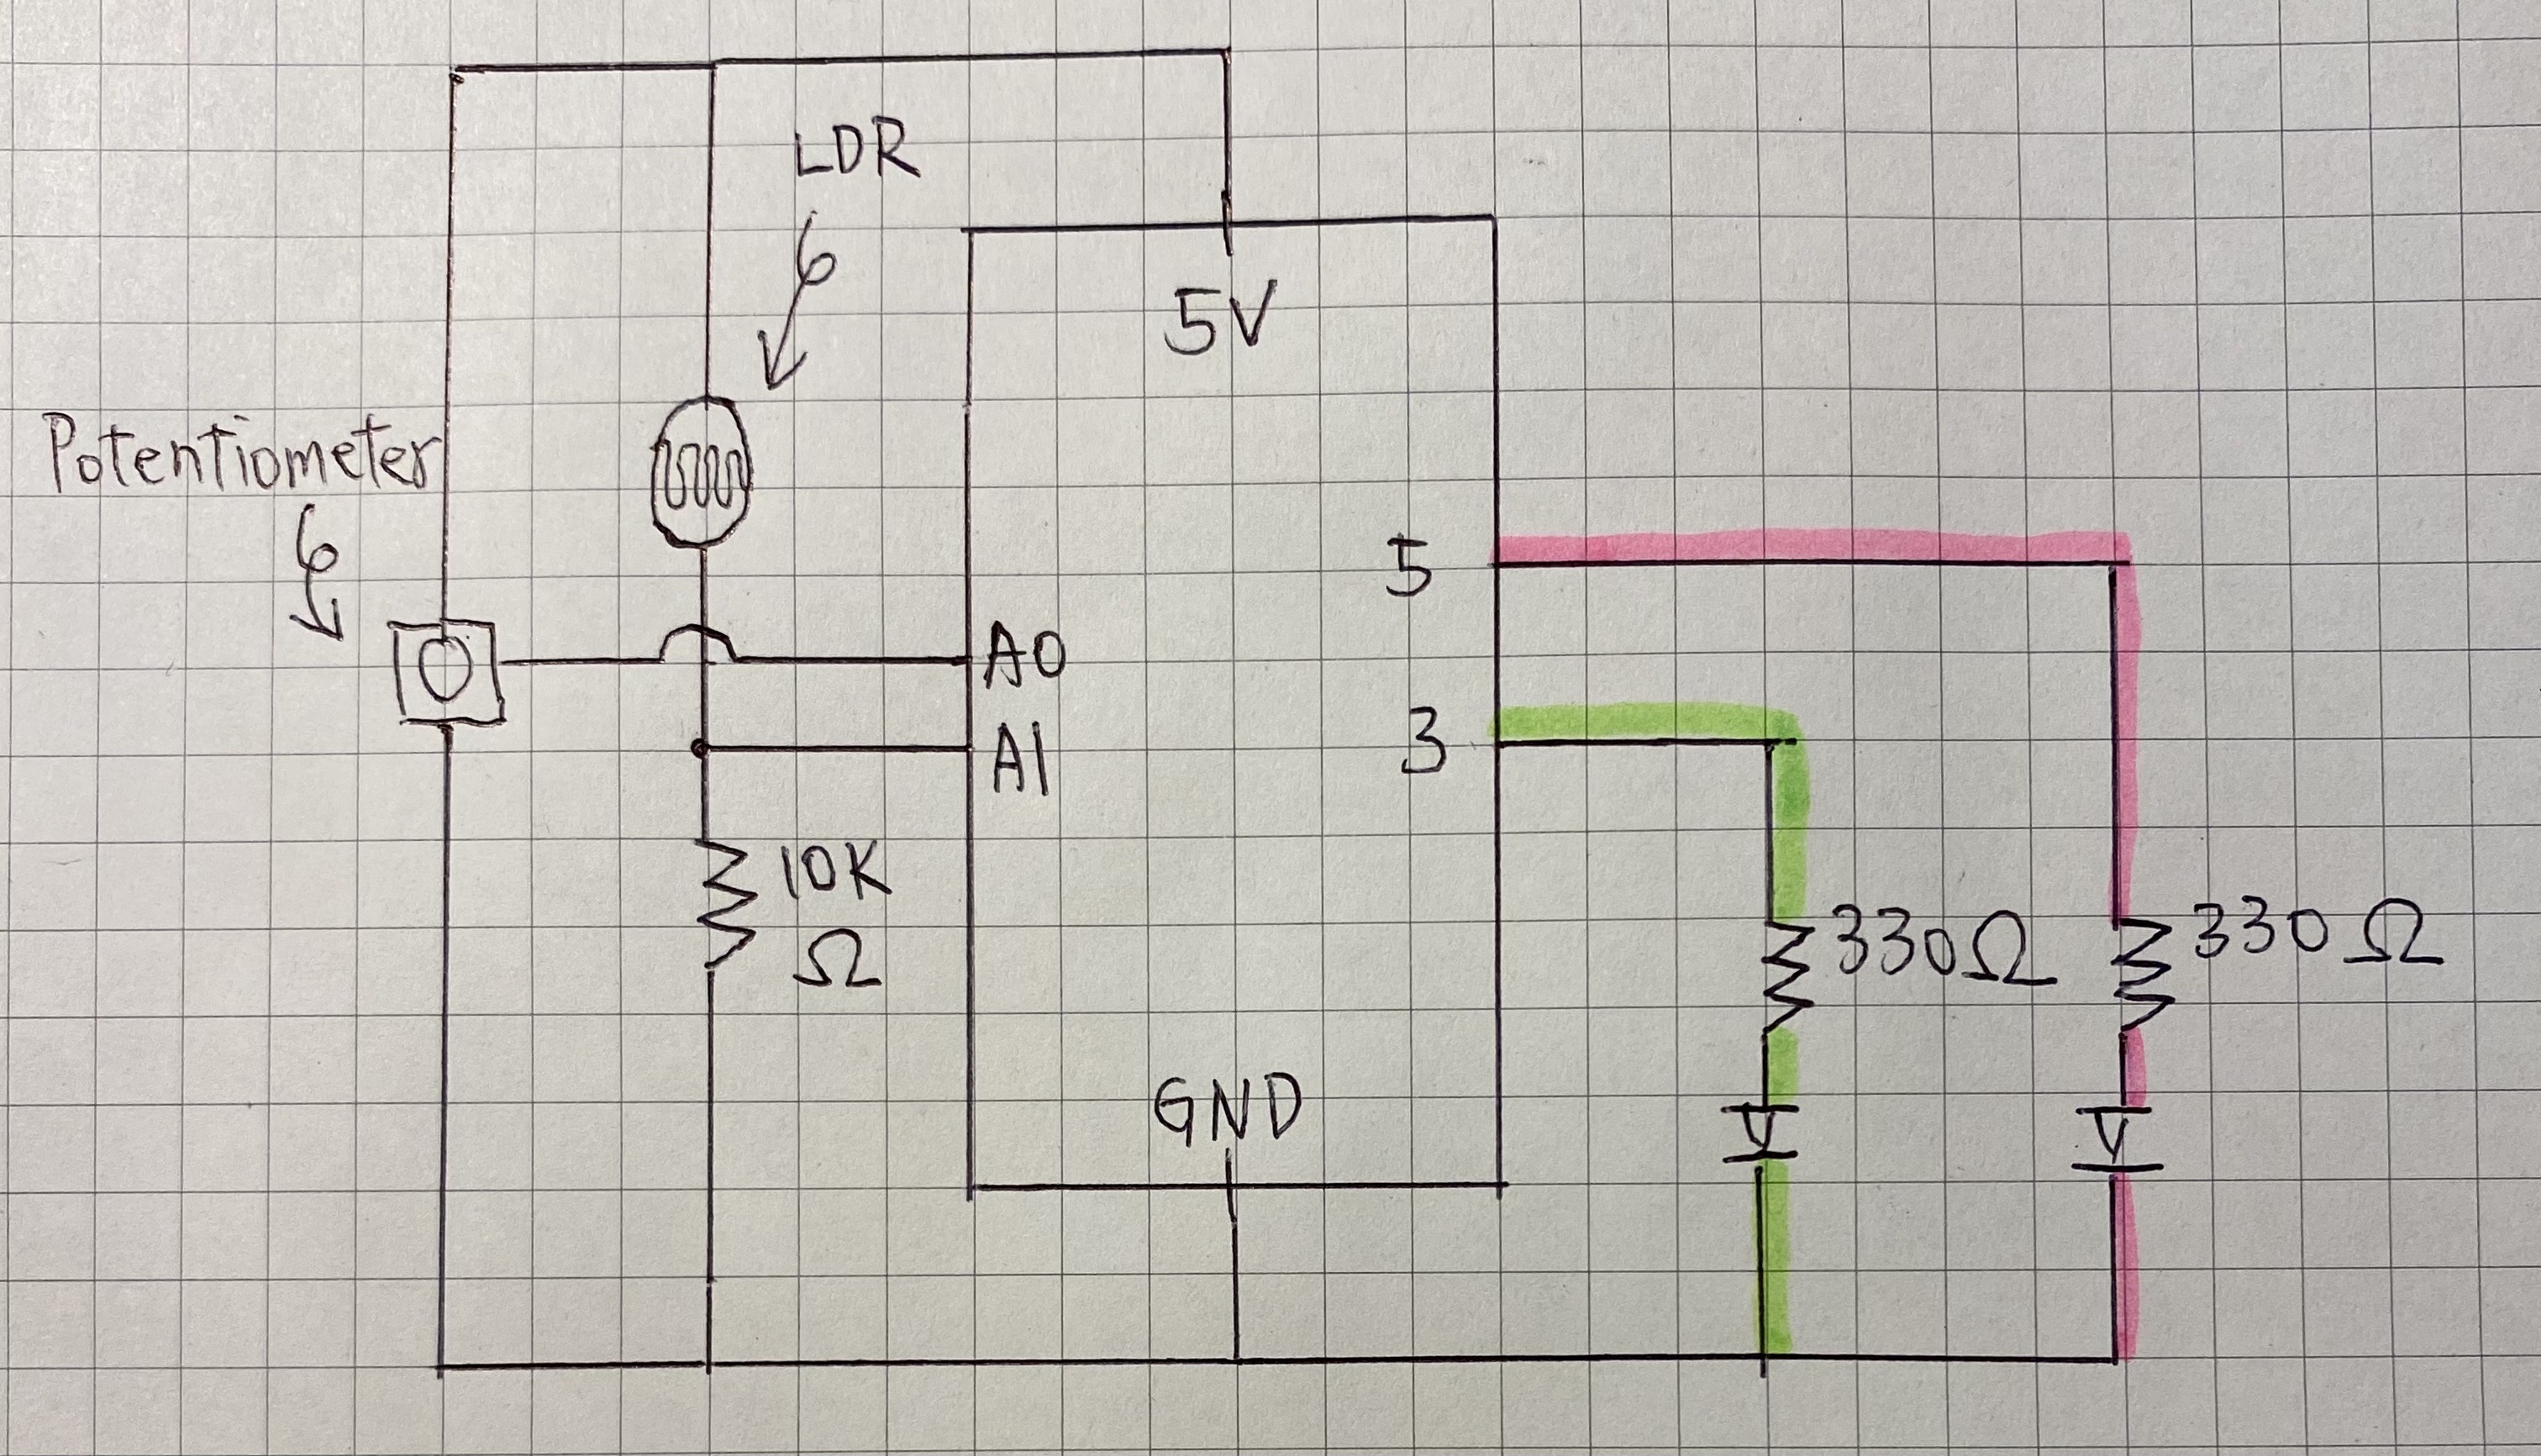 LDR
5V
Potentiometer
5
A0
3
A1
10K
Ω
330Ω
330Ω
GND